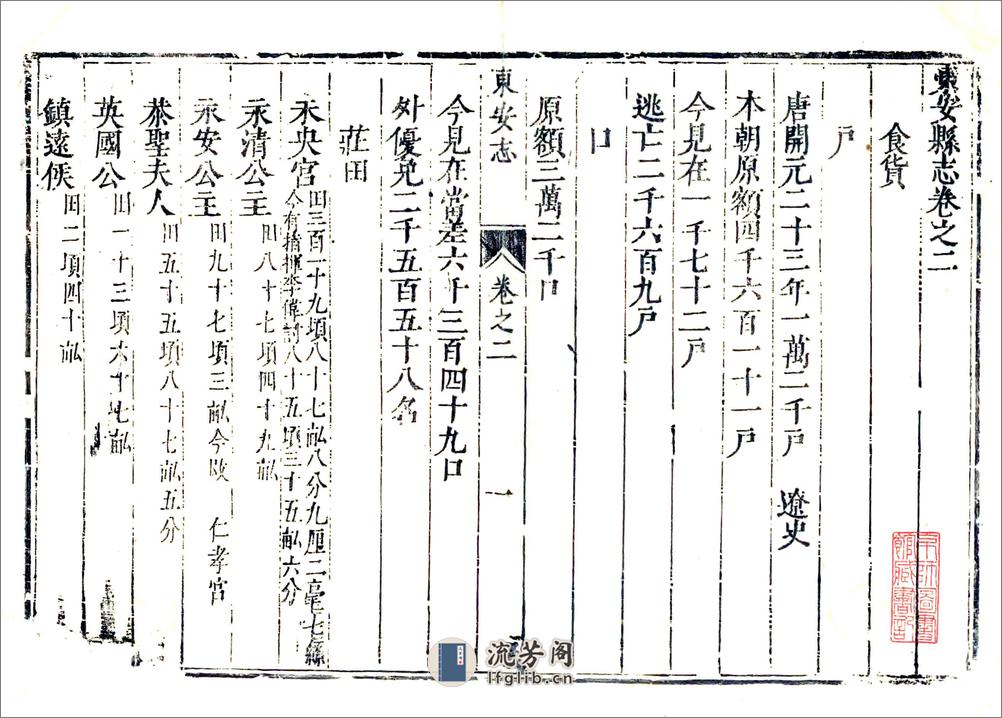 東安縣志卷之二
食貨
戶
唐開元二十三年一萬二千戶 遼史
本朝原額四千六百一十一戶
今見在一千七十二戶
逃亡二千六百九戶
口
原額三萬二千口
東安志 卷之二 一
今見在當差六千三百四十九口
外優免二千五百五十八名
莊田
未央宮 田三百一十九頃八十七畝八分九厘二毫七絲
今有指揮李偉討八十五頃三十五畝六分
永清公主 田八十七頃四十九畝
永安公主 田九十七頃三畝今改 仁孝宮
恭聖夫人 田五十五頃八十七畝五分
英國公 田一十三頃六十七畝
鎮遠侯 田二頃四十畝
京師圖書館藏書記
流芳阁
lfglib.cn